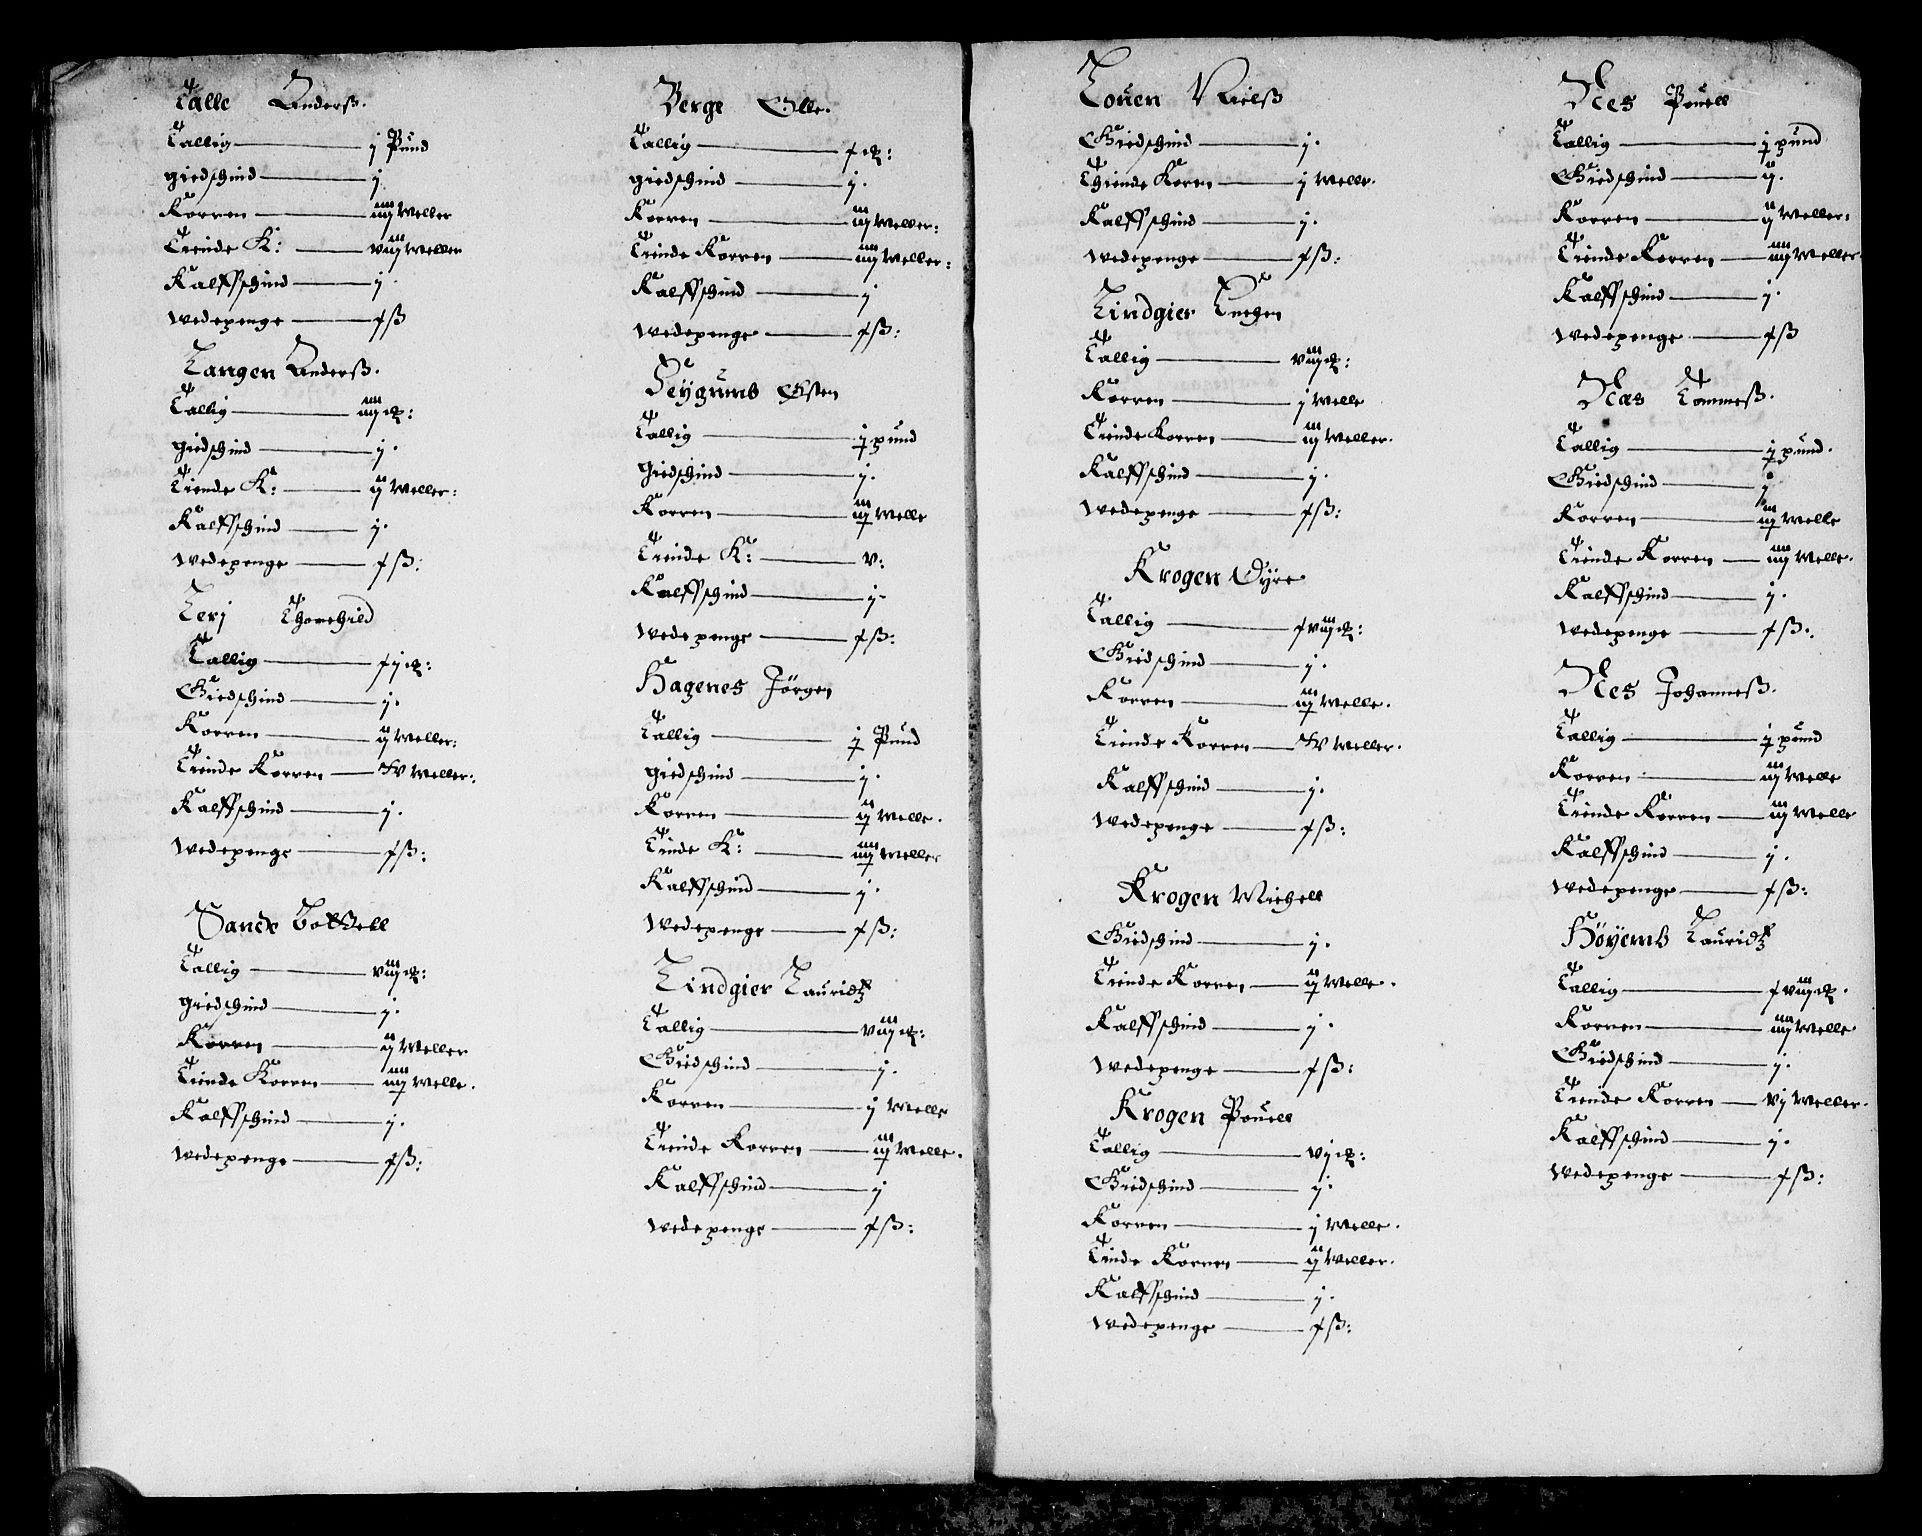 Talle Anderß.
Tallig — j Pund
giedschind — j
Korren — iiij Weller
Tiende K: — viij Weller
Kalffschind — j.
wedepenge — j ß
Langen Anderß.
Tallig — iiij
giedschind — j.
Tiende K: — ij Weller:
Kalffschind — j.
wedepenge — j ß:
Lerj Thorchild
Tallig
Giedschind — j.
Korren — ij Weller:
Tiende Korren — Weller:
Kalffschind — j.
wedepenge — j ß:
Sande Bottell
Tallig — viij
giedschind — j.
Korren — ij Weller
Tiende Korren — Welle.
Kalffschind — j.
wedepenge — j ß:
Berge Olle.
Tallig
giedschind — j.
Korren — iij Weller:
Tiende Korren — iiij Weller:
Kalffschind — j
wedepenge — j ß:
Heygumb Esten
Tallig — pund
giedschind — j.
Korren — Welle
Tiende K: — v:
Kalffschind — j
wedepenge — j ß:
Hagenes Jörgen
Tallig — Pund
giedschind — j.
Korren — Welle.
Tinde K: — Weller
Kalffschind — j.
wedepenge — j ß:
Lindgier Lauridtz
Tallig — viij
Giedschind — j.
Korren — j Welle
Tiende Korren — Welle.
Kalffschind — j
wedepenge — j ß:
Louen Nielß
Giedschind — j.
Thiende Korren — j Weller.
Kalffschind — j.
wedepenge — j ß:
Lindgier
Tallig — viij
Korren — j Welle
Tiende Korren — iij Weller.
Kalffschind — j.
wedepenge — j ß:
Krogen Øyre
Tallig
Giedschind — j.
Korren — Welle.
Tiende Korren — Weller.
Kalffschind — j.
wedepenge — j ß:
Krogen Michell
Giedschind — j.
Tiende Korren — Welle.
Kalffschind — j.
wedepenge — j ß:
Krogen Pouell
Tallig — vj
Giedschind — j.
Korren — j Welle.
Tinde Korren — Weller.
Kalffschind — j.
wedepenge — j ß:
Nes Pouell
Tallig — pund
Giedschind — ij.
Korren — ij Weller:
Tiende Korren — iiij Weller
Kalffschind — j.
wedepenge — j ß
Næs Tommeß.
Tallig — pund.
Giedschind — j
Korren — Welle
Tiende Korren — iiij Welle.
Kalffschind — j.
wedepenge — j ß:
Nes Johanneß.
Tallig — pund
Korren — iij Welle
Tiende Korren — iij Welle
Kalffschind — j.
wedepenge — j ß:
Höyemb Lauridtz
Tallig
Korren — iiij Welle
Giedschind — j.
Tiende Korren — vj Weller.
Kalffschind — j.
wedepenge — j ß: